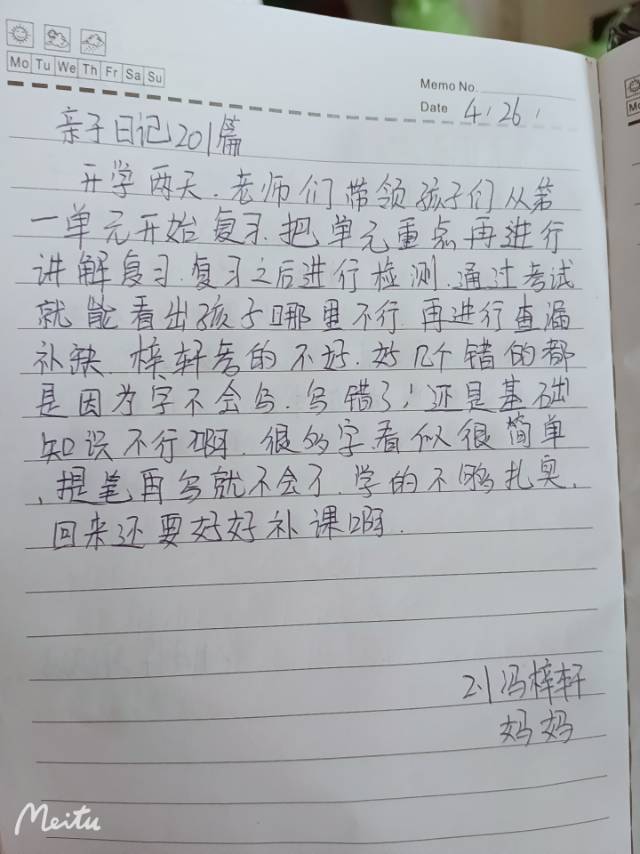 Mo Tu We Th Fr Sa Su
Memo No.
Date 4.26.
亲子日记201篇
开学两天.老师们带领孩子们从第
一单元开始复习.把单元重点再进行
讲解复习.复习之后进行检测.通过考试
就能看出孩子哪里不行.再进行查漏
补缺.梓轩考的不好.好几个错的都
是因为字不会写.写错了!还是基础
知识不行啊.很多字看似很简单
、提笔再写就不会了.学的不够扎实.
回来还要好好补课啊.
2.1冯梓轩
妈妈
Meitu